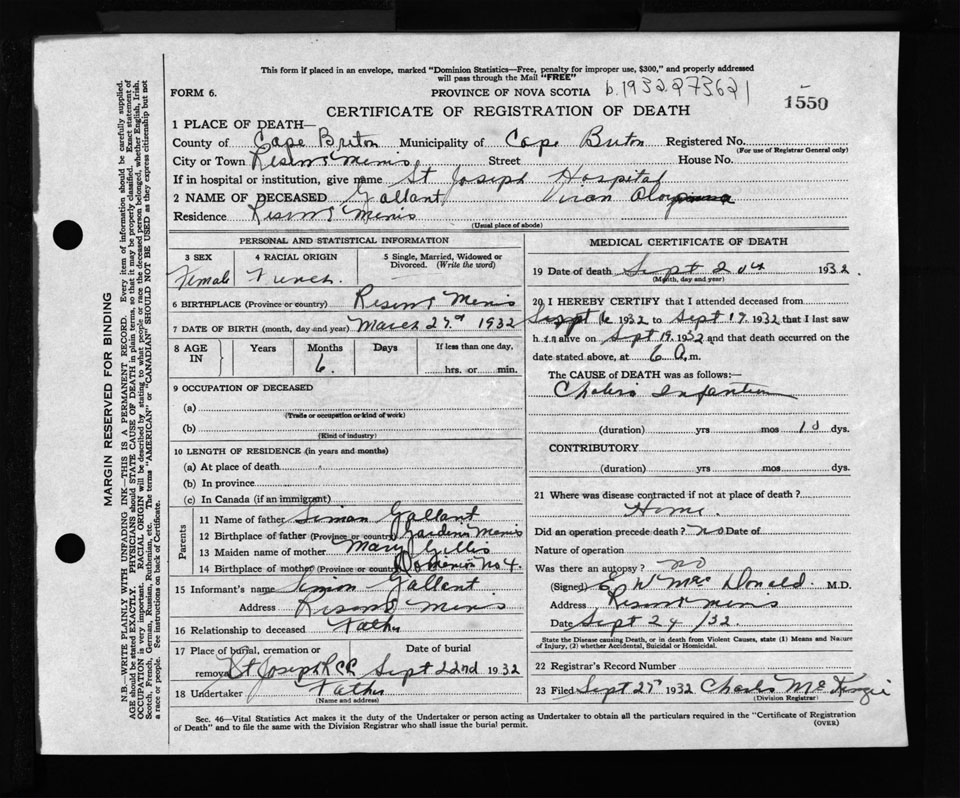 This form if placed in an envelope, marked "Dominion Statistics—Free, penalty for improper use, $300," and properly addressed
will pass through the Mail "FREE"
FORM 6. PROVINCE OF NOVA SCOTIA b.1932 273621
1550
CERTIFICATE OF REGISTRATION OF DEATH
1 PLACE OF DEATH—
County of Cape Breton Municipality of Cape Breton Registered No.
(For use of Registrar General only)
City or Town Reserve Mines Street House No.
If in hospital or institution, give name St Joseph Hospital
2 NAME OF DECEASED Gallant
Residence Reserve Mines
(Usual place of abode)
PERSONAL AND STATISTICAL INFORMATION
3 SEX 4 RACIAL ORIGIN 5 Single, Married, Widowed or
Divorced. (Write the word)
Female French
6 BIRTHPLACE (Province or country) Reserve Mines
7 DATE OF BIRTH (month, day and year) March 27th 1932
8 AGE IN Years Months Days If less than one day,
6. hrs. or min.
9 OCCUPATION OF DECEASED
(a)
(Trade or occupation or kind of work)
(b)
(Kind of industry)
10 LENGTH OF RESIDENCE (in years and months)
(a) At place of death
(b) In province
(c) In Canada (if an immigrant)
Parents
11 Name of father Simon Gallant
12 Birthplace of father (Province or country) Gardiner Mines
13 Maiden name of mother Mary Gillis
14 Birthplace of mother (Province or country) Dominion No 4.
15 Informant's name Simon Gallant
Address Reserve Mines
16 Relationship to deceased Father
17 Place of burial, cremation or Date of burial
removal St Joseph Sept 22nd 1932
18 Undertaker Father
(Name and address)
MEDICAL CERTIFICATE OF DEATH
19 Date of death Sept 20th 1932.
(Month, day and year)
20 I HEREBY CERTIFY that I attended deceased from
Sept 16 1932 to Sept 19. 1932 that I last saw
h alive on Sept 19. 1932 and that death occurred on the
date stated above, at 6 a.m.
The CAUSE of DEATH was as follows:—
Cholera Infantum
(duration) yrs mos 10 dys.
CONTRIBUTORY
(duration) yrs mos dys.
21 Where was disease contracted if not at place of death?
Home.
Did an operation precede death? no Date of
Nature of operation
Was there an autopsy? no
(Signed) E W MacDonald M.D.
Address Reserve Mines
Date Sept 24 /32.
State the Disease causing Death, or in death from Violent Causes, state (1) Means and Nature
of Injury, (2) whether Accidental, Suicidal or Homicidal.
22 Registrar's Record Number
23 Filed Sept 27th 1932 Charles McKenzie
(Division Registrar)
Sec. 46—Vital Statistics Act makes it the duty of the Undertaker or person acting as Undertaker to obtain all the particulars required in the "Certificate of Registration
of Death" and to file the same with the Division Registrar who shall issue the burial permit.
(OVER)
MARGIN RESERVED FOR BINDING
N.B.—WRITE PLAINLY WITH UNFADING INK—THIS IS A PERMANENT RECORD. Every item of information should be carefully supplied.
AGE should be stated EXACTLY. PHYSICIANS should STATE CAUSE OF DEATH in plain terms, so that it may be properly classified. Exact statement of
OCCUPATION is very important. RACIAL ORIGIN will be described by stating to what people or race the deceased person belonged, whether English, Irish,
Scotch, French, German, Russian, Ruthenian, etc. The terms "AMERICAN" or "CANADIAN" SHOULD NOT BE USED as they express citizenship but not
a race or people. See instructions on back of Certificate.